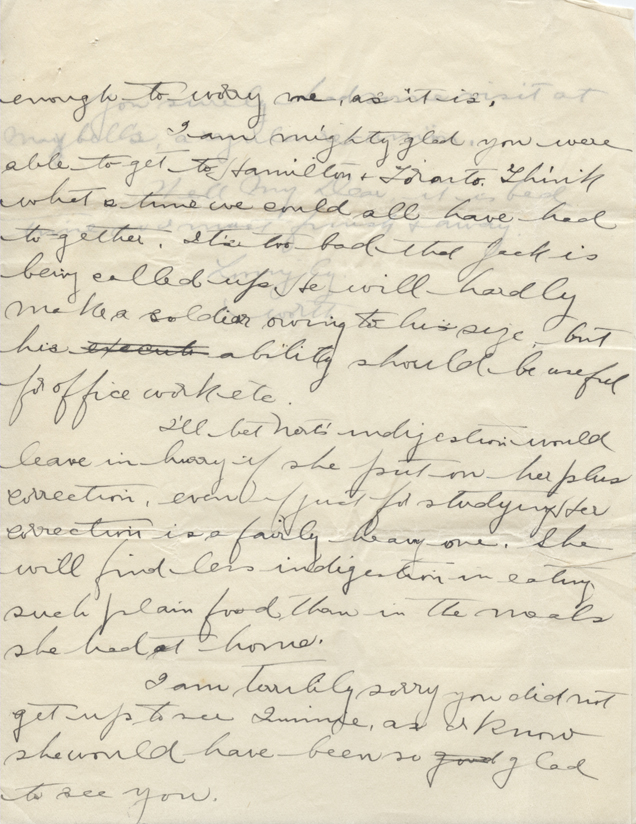 enough to worry me, as it is.
I am mighty glad you were
able to get to Hamilton & Toronto. Think
what a time we could all have had
together. It is too bad that Jack is
being called up. He will hardly
make a soldier owing to his size, but
his execute ability should be useful
for office work etc.
I'll bet indigestion would
leave in hurry if she put on her plus
correction, even if just for studying. Her
correction is a fairly heavy one. She
will find less indigestion in eating
such plain food, than in the meals
she had at home.
I am terribly sorry you did not
get up to see as I know
she would have been so good glad
to see you.